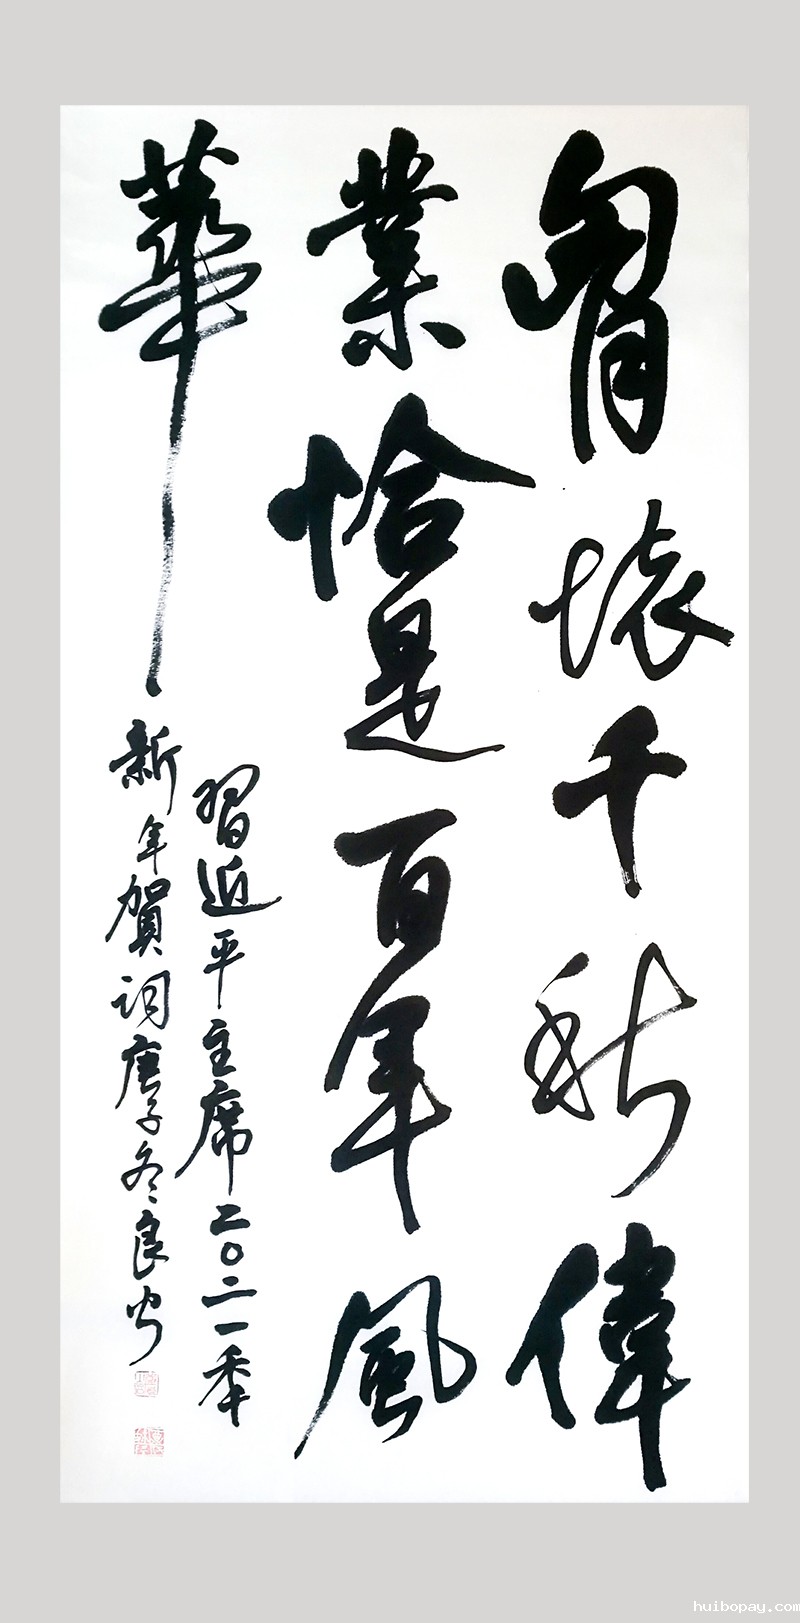 胷懷千秋偉
業恰是百年風
華
習近平主席二〇二一秊
新年賀詞庚子冬良
huibopay.com